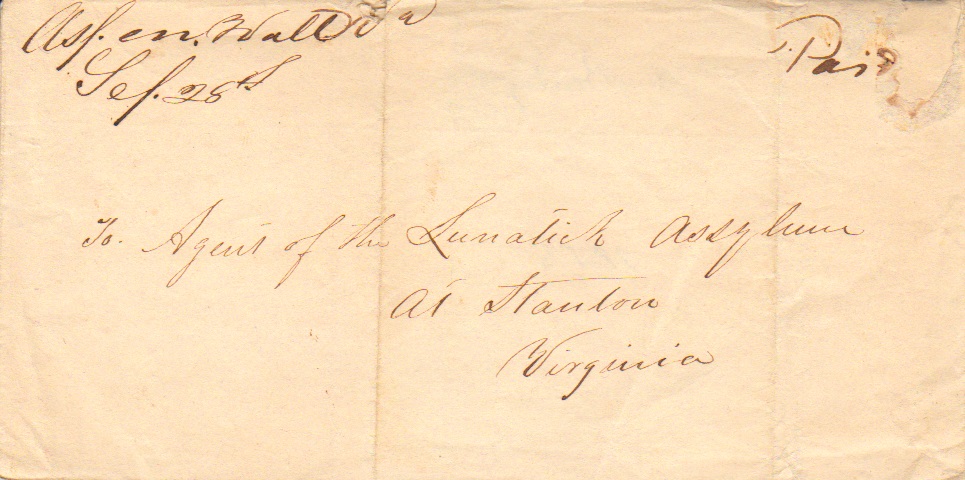 Aspen Wall Va
Sep. 28th
Paid
To. Agent of the Lunatick Assylum
At Stanton
Virginia